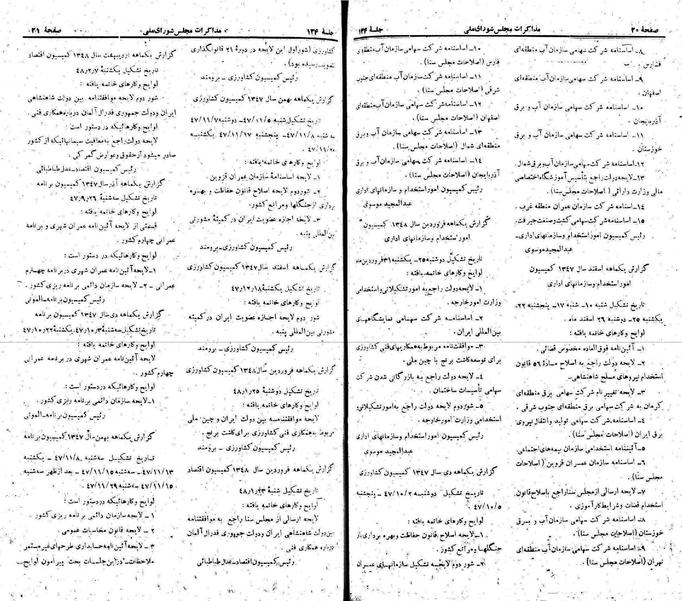 صفحهٔ ۲۰
مذاکرات مجلس شورای ملی
جلسهٔ ۱۳۴
۸ـ اساسنامه شرکت سهامی سازمان آب منطقه‌ای
فارس
۹ـ اساسنامه شرکت سهامی سازمان آب منطقه‌ای
اصفهان .
۱۰ـ اساسنامه شرکت سهامی سازمان آب و برق
آذربایجان
۱۱ـ اساسنامه شرکت سهامی سازمان آب و برق
خوزستان .
۱۲ـ اساسنامه شرکت سهامی سازمان آب و برق شمال
۱۳ـ لایحه دولت راجع بتأسیس آموزشگاه اختصاصی
مالی وزارت دارائی ( اصلاحات مجلس سنا ) .
۱۴ـ اساسنامه شرکت سهامی سازمان عمران منطقه غرب .
۱۵ـ اساسنامه شرکت سهامی کشت و صنعت جیرفت .
رئیس کمیسیون امور استخدام و سازمانهای اداری ـ
عبدالمجید موسوی
گزارش یکماهه اسفند سال ۱۳۴۷ کمیسیون
امور استخدام و سازمانهای اداری
تاریخ تشکیل شنبه ۱۰ـ شنبه ۱۷ـ پنجشنبه ۲۲ـ
یکشنبه ۲۵ـ دوشنبه ۲۶ اسفند ماه .
لوایح و کارهای خاتمه یافته :
۱ـ آئین‌نامه فوق‌العاده مخصوص قضائی .
۲ـ لایحه دولت راجع به اصلاح مادهٔ ۵۶ قانون
استخدام نیروهای مسلح شاهنشاهی .
۳ـ لایحه تغییر نام شرکت سهامی برق منطقه‌ای
کرمان به شرکت سهامی برق منطقه‌ای جنوب شرقی .
۴ـ اساسنامه شرکت سهامی تولید و انتقال نیروی
برق ایران ( اصلاحات مجلس سنا ) .
۵ـ اساسنامه استخدام سازمان بیمه‌های اجتماعی .
۶ـ اساسنامه سازمان عمران قزوین ( اصلاحات
مجلس سنا ) .
۷ـ لایحه ارسالی از مجلس سنا راجع باصلاح قانون
استخدام قضات و شرایط کارآموزی .
۸ـ اساسنامه شرکت سهامی سازمان آب و برق
خوزستان ( اصلاحات مجلس سنا ) .
۹ـ اساسنامه شرکت سهامی سازمان آب منطقه‌ای
تهران ( اصلاحات مجلس سنا ) .
۱۰ـ اساسنامه شرکت سهامی سازمان آب منطقه‌ای
فارس ( اصلاحات مجلس سنا ) .
۱۱ـ اساسنامه شرکت سهامی سازمان آب منطقه‌ای جنوب
شرقی ( اصلاحات مجلس سنا ) .
۱۲ـ اساسنامه شرکت سهامی سازمان آب منطقه‌ای
اصفهان ( اصلاحات مجلس سنا ) .
۱۳ـ اساسنامه شرکت سهامی سازمان آب و برق
منطقه‌ای شمال ( اصلاحات مجلس سنا ) .
۱۴ـ اساسنامه شرکت سهامی سازمان آب و برق
آذربایجان ( اصلاحات مجلس سنا ) .
رئیس کمیسیون امور استخدام و سازمانهای اداری
عبدالمجید موسوی
گزارش یکماهه فروردین سال ۱۳۴۸ کمیسیون
امور استخدام و سازمانهای اداری
تاریخ تشکیل دوشنبه ۲۵ـ یکشنبه ۳۱ فروردین ماه
لوایح و کارهای خاتمه یافته :
۱ـ لایحه دولت راجع به امور تشکیلاتی و استخدامی
وزارت امور خارجه .
۲ـ اساسنامه شرکت سهامی نمایشگاههای
بین‌المللی ایران .
۳ـ موافقتنامه مربوط به همکاریهای فنی کشاورزی
برای توسعه کاشت برنج با چین ملی .
۴ـ لایحه دولت راجع به بازرگانی شدن شرکت
سهامی تأسیسات ساختمان .
۵ـ شور دوم لایحه دولت راجع به امور تشکیلاتی و
استخدامی وزارت امور خارجه .
رئیس کمیسیون امور استخدام و سازمانهای اداری
عبدالمجید موسوی
گزارش یکماهه دی سال ۱۳۴۷ کمیسیون کشاورزی
تاریخ تشکیل دوشنبه ۴۷/۱۰/۲ ـ پنجشنبه
۴۷/۱۰/۵
لوایح و کارهای خاتمه یافته :
۱ـ لایحه اصلاح قانون حفاظت و بهره برداری از
جنگلها و مراتع کشور .
۲ـ شور دوم لایحه تشکیل سازمانهای عمران
جلسهٔ ۱۳۴
مذاکرات مجلس شورای ملی
صفحهٔ ۲۱
کشاورزی ( شور اول این لایحه در دورهٔ ۲۱ قانونگذاری
تصویب رسیده بود ) .
رئیس کمیسیون کشاورزی ـ برومند
گزارش یکماهه بهمن سال ۱۳۴۷ کمیسیون کشاورزی
تاریخ تشکیل شنبه ۴۷/۱۱/۵ ـ دوشنبه ۴۷/۱۱/۷
سه شنبه ۴۷/۱۱/۸ ـ پنجشنبه ۴۷/۱۱/۱۷ یکشنبه
۴۷/۱۱/۲۰
لوایح و کارهای خاتمه یافته :
۱ـ لایحه اساسنامهٔ سازمان عمران قزوین .
۲ـ شور دوم لایحه اصلاح قانون حفاظت و بهره
برداری از جنگلها و مراتع کشور .
۳ـ لایحه اجازه عضویت ایران در کمیتهٔ مشورتی
بین‌المللی پنبه .
رئیس کمیسیون کشاورزی ـ برومند
گزارش یکماهه اسفند سال ۱۳۴۷ کمیسیون کشاورزی
تاریخ تشکیل یکشنبه ۴۷/۱۲/۱۸
لوایح و کارهای خاتمه یافته :
شور دوم لایحه اجازه عضویت ایران در کمیته
مشورتی بین المللی پنبه .
رئیس کمیسیون کشاورزی ـ برومند
گزارش یکماهه فروردین سال ۱۳۴۸ کمیسیون کشاورزی
تاریخ تشکیل دوشنبهٔ ۴۸/۱/۲۵
لوایح و کارهای خاتمه یافته :
لایحه موافقتنامه بین دولت ایران و چین ملی
مربوط به همکاری فنی کشاورزی برای کاشت برنج .
رئیس کمیسیون کشاورزی ـ برومند
گزارش یکماهه فروردین سال ۱۳۴۸ کمیسیون اقتصاد
تاریخ تشکیل شنبه ۴۸/۱/۲۳
لایحه ارسالی از مجلس سنا راجع به موافقتنامه
بین دولت شاهنشاهی ایران و دولت جمهوری فدرال آلمان
درباره همکاری فنی .
رئیس کمیسیون اقتصاد ـ عدل طباطبائی
گزارش یکماهه اردیبهشت سال ۱۳۴۸ کمیسیون اقتصاد
تاریخ تشکیل یکشنبه ۴۸/۲/۷
لوایح و کارهای خاتمه یافته :
شور دوم لایحه موافقتنامه بین دولت شاهنشاهی
ایران و دولت جمهوری فدرال آلمان درباره همکاری فنی .
لوایح و کارهائیکه در دستور است :
لایحه دولت راجع به معافیت سیمانیکه از کشور
صادر میشود از حقوق و عوارض گمرکی .
رئیس کمیسیون اقتصاد ـ عدل طباطبائی
گزارش یکماهه آذر سال ۱۳۴۷ کمیسیون برنامه
تاریخ تشکیل سه شنبه ۴۷/۹/۲۶
لوایح و کارهای خاتمه یافته :
قسمتی از لوایح آئین نامه عمران شهری و برنامه
عمرانی چهارم کشور .
لوایح و کارهائیکه در دستور است :
۱ـ لایحه آئین نامه عمران شهری در برنامه چهارم
عمرانی ـ ۲ـ لایحه سازمان دائمی برنامه ریزی کشور .
رئیس کمیسیون برنامه ـ المونی
گزارش یکماهه دی سال ۱۳۴۷ کمیسیون برنامه
تاریخ تشکیل سه شنبه ۴۷/۱۰/۳ یکشنبه ۴۷/۱۰/۲۲
لوایح و کارهای خاتمه یافته :
لایحه آئین نامه عمران شهری در برنامه عمرانی
چهارم کشور .
لوایح و کارهائیکه در دستور است :
۱ـ لایحه سازمان دائمی برنامه ریزی کشور .
رئیس کمیسیون برنامه ـ المونی
گزارش یکماهه بهمن سال ۱۳۴۷ کمیسیون برنامه
تاریخ تشکیل سه شنبه ۴۷/۱۱/۸ ـ یکشنبه
۴۷/۱۱/۱۳ ـ سه شنبه ۴۷/۱۱/۱۵ ـ بعد از ظهر سه شنبه
۴۷/۱۱/۱۵ ـ سه شنبه ۴۷/۱۱/۲۹
لوایح و کارهائیکه در دستور است :
۱ـ لایحه سازمان دائمی برنامه ریزی کشور .
۲ـ لایحه قانون محاسبات عمومی .
۳ـ لایحه آئین نامه حسابداری طرحهای غیر مستمر
ملاحظات ـ در این جلسات بحث پیرامون لوایح...